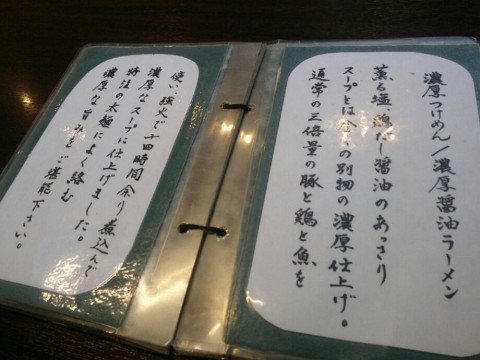 濃厚つけめん/濃厚醤油ラーメン
薫る塩、鶏だし醤油のあっさり
スープとは全くの別物の濃厚仕上げ。
通常の三倍量の豚と鶏と魚を
使い、強火で十四時間余り煮込んだ
濃厚なスープに仕上げました。
特注の太麺によく絡む
濃厚な旨みをご堪能下さい。